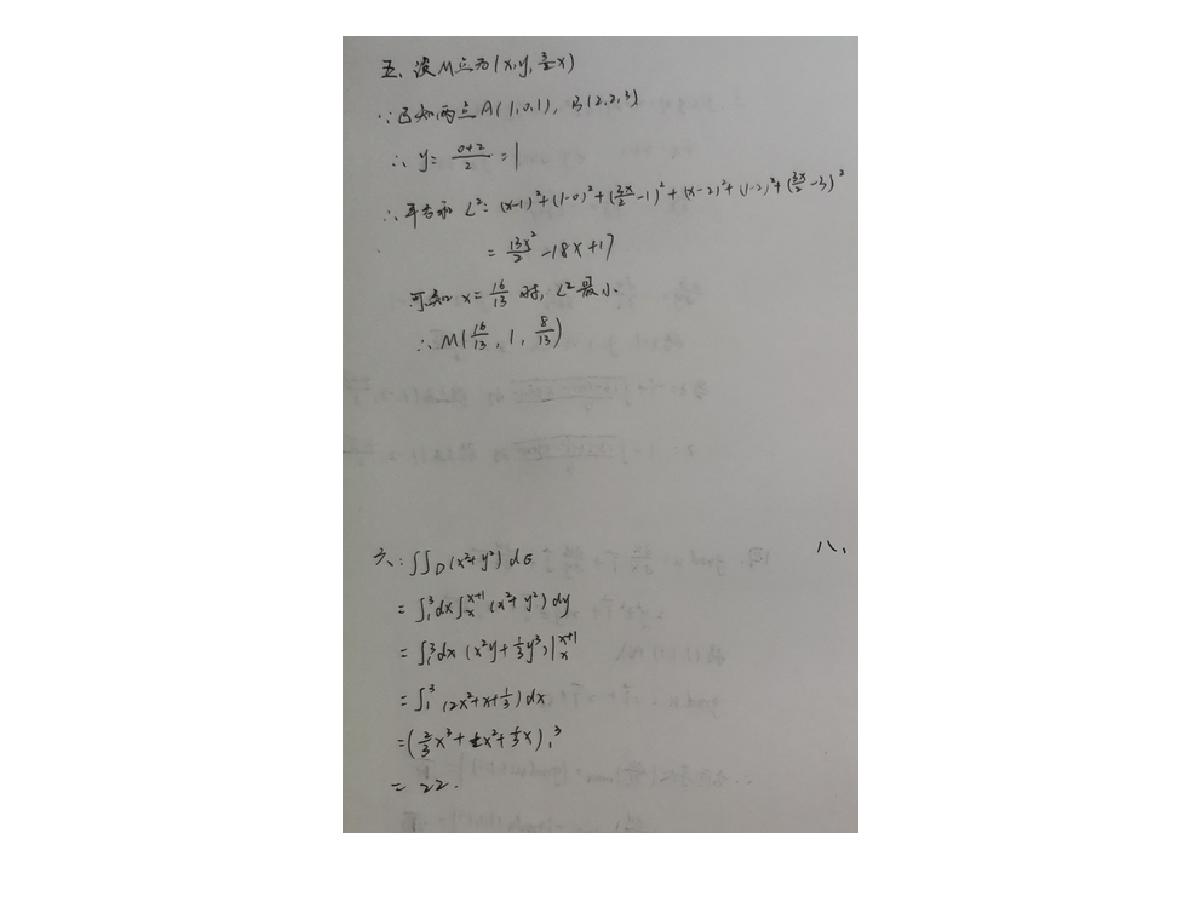 五、设M点为(x,y,3/2x)
∵已知两点A(1,0,1), B(2,2,3)
∴ y= (0+2)/2 =1
∴平方和 L²: (x-1)²+(1-0)²+(3x/2-1)²+(x-2)²+(1-2)²+(3x/2-3)²
= 13x²/2 -18x+17
可知 x=16/13 时, L²最小
∴ M(16/13, 1, 8/13)
六、: ∬D(x²+y²)dσ
八、
= ∫₁³dx∫ₓˣ⁺¹(x²+y²)dy
= ∫₁³dx (x²y+1/3y³)|ₓˣ⁺¹
= ∫₁³ (2x²+x+1/3)dx
=(2/3x³+1/2x²+1/3x)₁³
= 22.